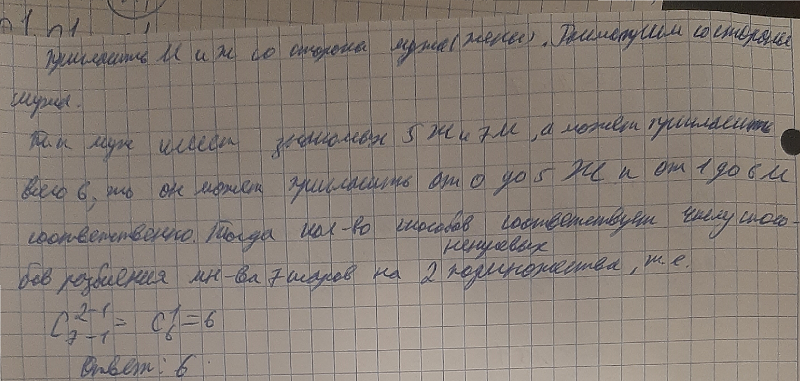 пригласить М и Ж со стороны мужа (жены). Рассмотрим со стороны
мужа.
Так муж имеет знакомых 5 Ж и 7 М, а может пригласить
всего 6, то он может пригласить от 0 до 5 Ж и от 1 до 6 М
соответственно. Тогда кол-во способов соответствует числу спосо-
бов разбиения мн-ва 7 шаров на 2 непустых подмножества, т.е.
C_{7-1}^{2-1} = C_6^1 = 6
Ответ: 6.